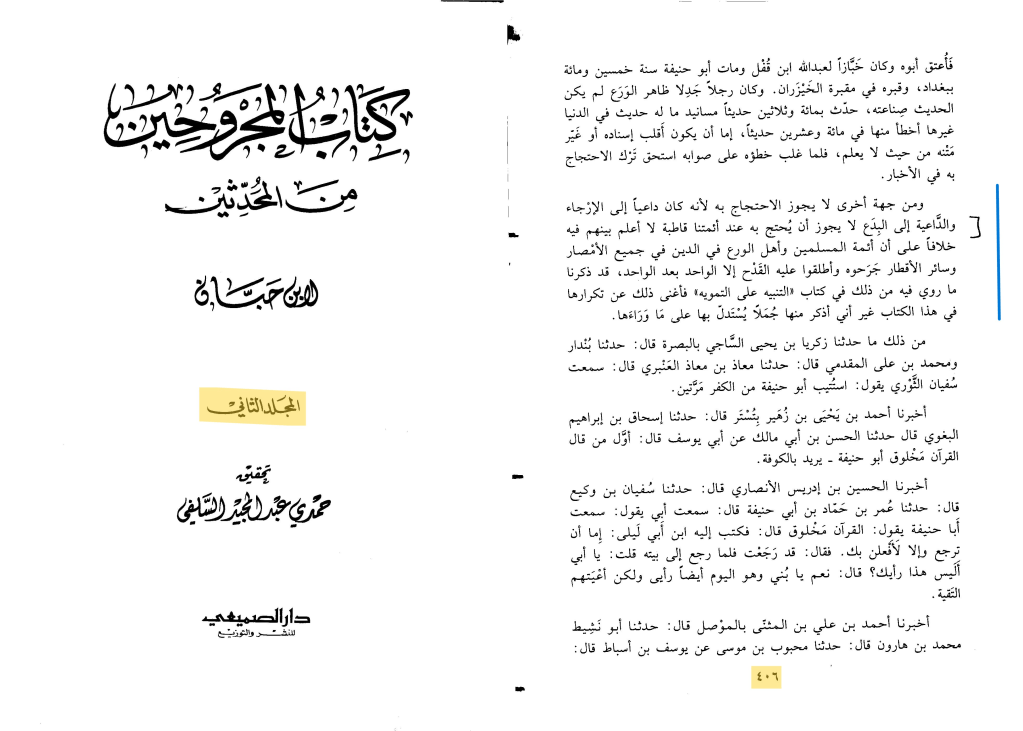 كتاب المجروحين
من المحدثين
لابن حبان
المجلد الثاني
تحقيق
حمدي عبد المجيد السلفي
دار الصميعي
للنشر والتوزيع
فَأُعتق أبوه وكان خَبَّازاً لعبدالله ابن قُفْل ومات أبو حنيفة سنة خمسين ومائة
ببغداد، وقبره في مقبرة الخَيْزَران. وكان رجلاً جَدِلا ظاهر الوَرَع لم يكن
الحديث صِناعته، حدّث بمائة وثلاثين حديثاً مسانيد ما له حديث في الدنيا
غيرها أخطأ منها في مائة وعشرين حديثاً، إما أن يكون أَقلب إسناده أو غَيّر
مَتْنه من حيث لا يعلم، فلما غلب خطؤه على صوابه استحق تَرْك الاحتجاج
به في الأخبار.
ومن جهة أخرى لا يجوز الاحتجاج به لأنه كان داعياً إلى الإرْجاء
والدَّاعية إلى البِدَع لا يجوز أن يُحتج به عند أئمتنا قاطبة لا أعلم بينهم فيه
خلافاً على أن أئمة المسلمين وأهل الورع في الدين في جميع الأمْصار
وسائر الأقطار جَرَحوه وأطلقوا عليه القَدْح إلا الواحد بعد الواحد، قد ذكرنا
ما روي فيه من ذلك في كتاب «التنبيه على التمويه» فأغنى ذلك عن تكرارها
في هذا الكتاب غير أني أذكر منها جُمَلاً يُسْتَدلّ بها على مَا وَرَاءَها.
من ذلك ما حدثنا زكريا بن يحيى السَّاجي بالبصرة قال: حدثنا بُنْدار
ومحمد بن على المقدمي قال: حدثنا معاذ بن معاذ العَنْبري قال: سمعت
سُفيان الثَّوْري يقول: استُتيب أبو حنيفة من الكفر مَرَّتين.
أخبرنا أحمد بن يَحْيَى بن زُهَير بِتُسْتَر قال: حدثنا إسحاق بن إبراهيم
البغوي قال حدثنا الحسن بن أبي مالك عن أبي يوسف قال: أوَّل من قال
القرآن مَخْلوق أبو حنيفة ـ يريد بالكوفة.
أخبرنا الحسين بن إدريس الأنصاري قال: حدثنا سُفيان بن وكيع
قال: حدثنا عُمر بن حَمّاد بن أبي حنيفة قال: سمعت أبي يقول: سمعت
أَبا حنيفة يقول: القرآن مَخْلوق قال: فكتب إليه ابن أَبي لَيلى: إِما أن
ترجع وإلا لَأَفْعلن بك. فقال: قد رَجَعْت فلما رجع إلى بيته قلت: يا أبي
أَلَيس هذا رأيك؟ قال: نعم يا بُني وهو اليوم أيضاً رأيى ولكن أعْيَتهم
التَقية.
أخبرنا أحمد بن علي بن المثنّى بالموْصل قال: حدثنا أبو نَشِيط
محمد بن هارون قال: حدثنا محبوب بن موسى عن يوسف بن أسباط قال:
٤٠٦